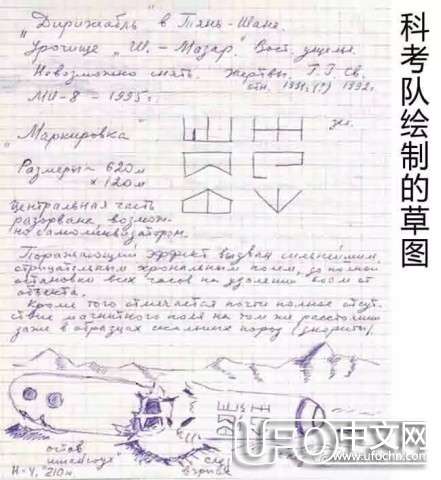 "Дирижабль" в Тянь-Шане.
Урочище "Ш. - Мазар." Вост. ущелье
Невозможно снять. Жертвы. Г.Г. Св.
МИ-8 - 1995г. отн. 1991,(?) 1992г.
"Маркировка"
Размеры ~ 620м
× 120м
Центральная часть
разорвана возмож-
но самоликвидатором.
Поражающий эффект вызван сильнейшим
отрицательным хрональным полем, до полной
остановки всех часов на удалении 800м от
объекта.
Кроме того отмечается почти полное отсут-
ствие магнитного поля на том же расстоянии
даже в образцах скальных пород (диориты).
остов
Н-ч. "210м.
взрыва
科考队绘制的草图
UFO中文网
www.ufochn.com